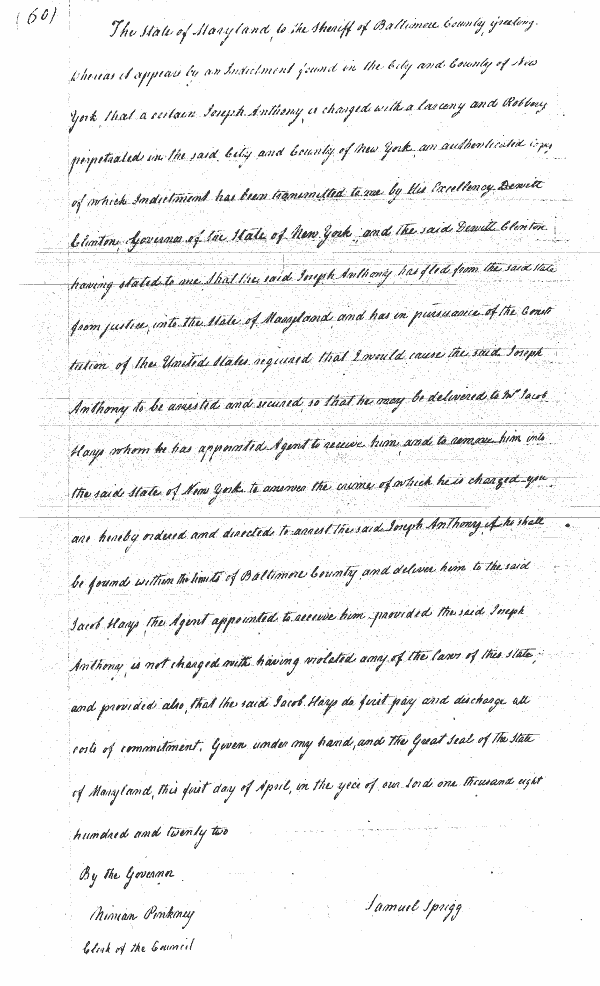 (60)
The State of Maryland, to the Sheriff of Baltimore County, greeting.
Whereas it appears by an Indictment found in the City and County of New
York, that a certain Joseph Anthony, is charged with a larceny and Robbery
perpetrated in the said City and County of New York, an authenticated copy
of which Indictment has been transmitted to me by His Excellency Dewitt
Clinton, Governor of the State of New York, and the said Dewitt Clinton
having stated to me that the said Joseph Anthony, has fled from the said State
from justice, into the State of Maryland and has in pursuance of the Consti
tution of the United States required that I would cause the said Joseph
Anthony to be arrested and secured, so that he may be delivered to Mr Jacob
Hays whom he has appointed Agent to receive him, and to remove him into
the said State of New York to answer the crime of which he is charged, you
are hereby ordered and directed to arrest the said Joseph Anthony, if he shall
be found within the limits of Baltimore County and deliver him to the said
Jacob Hays, the Agent appointed to receive him, provided the said Joseph
Anthony, is not charged with having violated any of the laws of this State,
and provided also, that the said Jacob Hays do first pay and discharge all
costs of commitment. Given under my hand, and the Great Seal of the State
of Maryland, this first day of April, in the year of our Lord one thousand eight
hundred and twenty two
By the Governor
Samuel Sprigg
Ninian Pinkney
Clerk of the Council